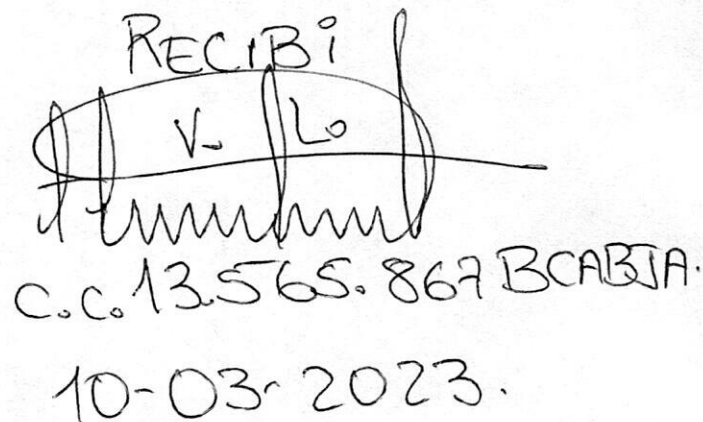 RECIBí
V- Lo
C.C. 13.565.867 BCABJA.
10-03-2023.